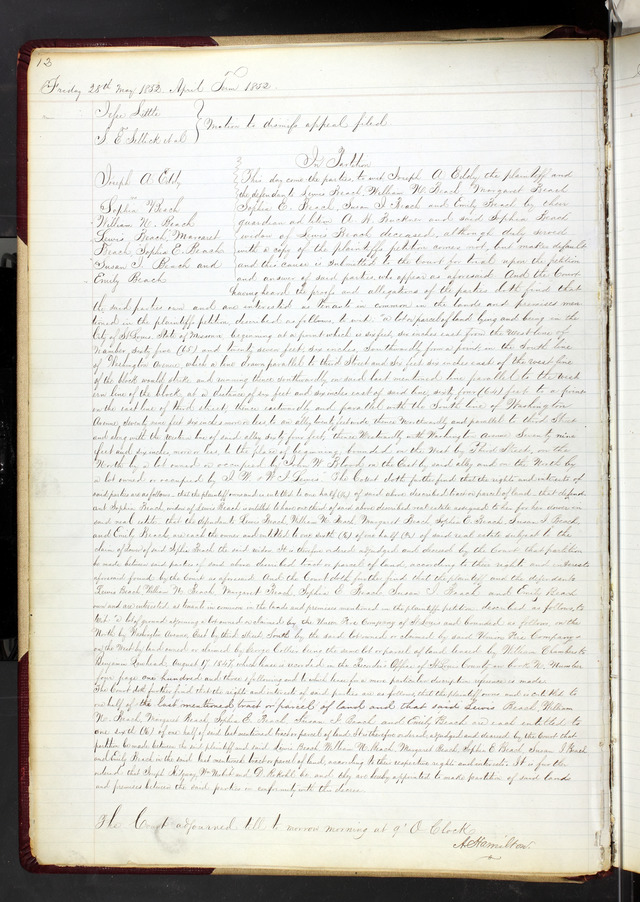 12
Friday 28th May 1852. April Term 1852.
Jesse Little
}
Motion to dismiss appeal filed
In Partition
Joseph A Eddy
Sophia Beach
William N. Beach
Lewis Beach, Margaret
Beach, Sophia E. Beach
Susan I. Beach and
Emily Beach
This day come the parties, to wit, Joseph A Eddy, the plaintiff and
the defendants Lewis Beach, William N. Beach, Margaret Beach
Sophia E. Beach, Susan I Beach and Emily Beach by their
guardian ad litem A. H. Buckner and said Sophia Beach
widow of Lewis Beach deceased, although duly served
with a copy of the plaintiffs petition comes not, but makes default
and this cause is submitted to the Court for trial upon the petition
and answer of said parties who appear as aforesaid. And the Court
having heard the proofs and allegations of the parties doth find that
the said parties own and are interested as tenants in common in the lands and premises men-
tioned in the plaintiffs petition, described as follows, to wit: a lot or parcel of land lying and being in the
City of St Louis State of Missouri beginning at a point which is six feet six inches east from the West line of
Number sixty five (65) and twenty seven feet six inches Southwardly from a point in the South line
of Washington Avenue, where a line drawn parallel to third Street and six feet six inches east of the west line
of the block would strike and running thence southwardly on said last mentioned line parallel to the west-
ern line of the block, at a distance of six feet and six inches east of said line, sixty four (64) feet to a point
in the east line of third street, thence eastwardly and parallel with the South line of Washington
Avenue seventy nine feet six inches more or less to an alley, thence Northwardly and parallel to third Street
and along with the western line of said alley sixty four feet, thence Westwardly with Washington Avenue Seventy nine
feet and six inches more or less to the place of beginning, bounded on the West by Third Street, on the
North by a lot owned or occupied by John W. on the East by said alley and on the South by
a lot owned or occupied by J. W. & W. I Lewis. The Court doth further find that the rights and interests of
said parties are as follows, that the plaintiff owns and is entitled to one half (½) of said above described lot or parcel of land, that the defend-
ant Sophia Beach widow of Lewis Beach is entitled to have one third of said above described real estate assigned to her for her dower in
said real estate; that the defendants Lewis Beach, William N. Beach, Margaret Beach, Sophia E. Beach, Susan I Beach
and Emily Beach are each the owner and entitled to one sixth (⅙) of one half (½) of said real estate subject to the
claim of dower of said Sophia Beach the said widow. It is therefore ordered adjudged and decreed by the Court that partition
be made between said parties of said above described lot or parcel of land according to their rights and interests
aforesaid found by the Court as aforesaid. And the Court doth further find that the plaintiff and the defendants
Lewis Beach, William N. Beach, Margaret Beach, Sophia E Beach Susan I. Beach and Emily Beach
own and are interested as tenants in common in the lands and premises mentioned in the plaintiffs petition, described as follows, to
wit: "a lot of ground adjoining a lot owned or claimed by the Union Fire Company of St Louis and bounded as follows, on the
North by Washington Avenue, East by third Street, South by the said lot owned or claimed by said Union Fire Company
on the West by land owned or claimed by George Collier being the same lot or parcel of land leased by William Chambers to
Benjamin August 17, 1847, which lease is recorded in the Recorders Office of St Louis County in book No Number
four page one hundred and three & following and to which lease for a more particular description reference is made.
The Court doth further find that the rights and interests of said parties are as follows, that the plaintiff owns and is entitled to
one half of the last mentioned tract or parcel of land and that said Lewis Beach, William
N. Beach, Margaret Beach, Sophia E. Beach, Susan I. Beach and Emily Beach are each entitled to
one sixth (⅙) of one half of said last mentioned tract or parcel of land. It is therefore ordered, adjudged and decreed by the Court that
partition be made between the said plaintiff and said Lewis Beach William N. Beach, Margaret Beach, Sophia E. Beach, Susan I Beach
and Emily Beach in the said last mentioned tract or parcel of land, according to their respective rights and interests. It is further
ordered that Joseph and they are hereby appointed to make partition of said lands
and premises between the said parties in conformity with this decree.
The Court adjourned till to morrow morning at 9' O Clock
A Hamilton